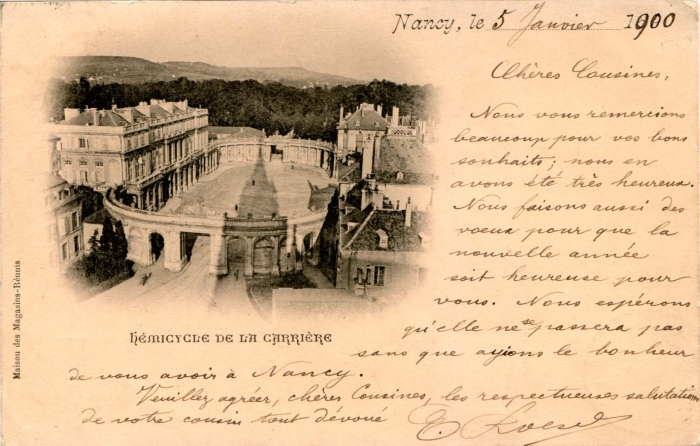 Nancy, le 5 Janvier 1900
Chères Cousines,
Nous vous remercions
beaucoup pour vos bons
souhaits; nous en
avons été très heureux.
Nous faisons aussi des
voeux pour que la
nouvelle année
soit heureuse pour
vous. Nous espérons
qu'elle ne se passera pas
sans que ayions le bonheur
de vous avoir à Nancy.
Veuillez agréer, chères Cousines, les respectueuses salutations
de votre cousin tout dévoué
HÉMICYCLE DE LA CARRIÈRE
Maison des Magasins-Réunis